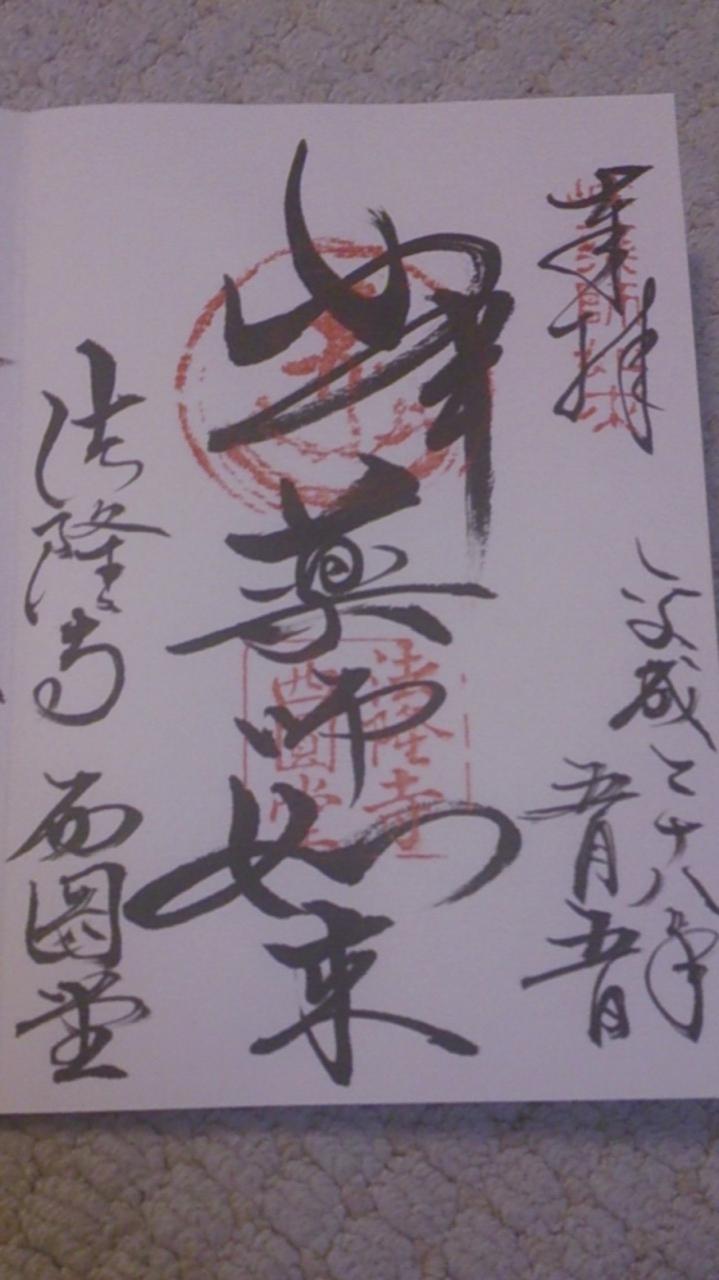 奉拝
平成二十八年
五月五日
峯薬師如来
法隆寺
西圓堂
法隆寺 西圓堂